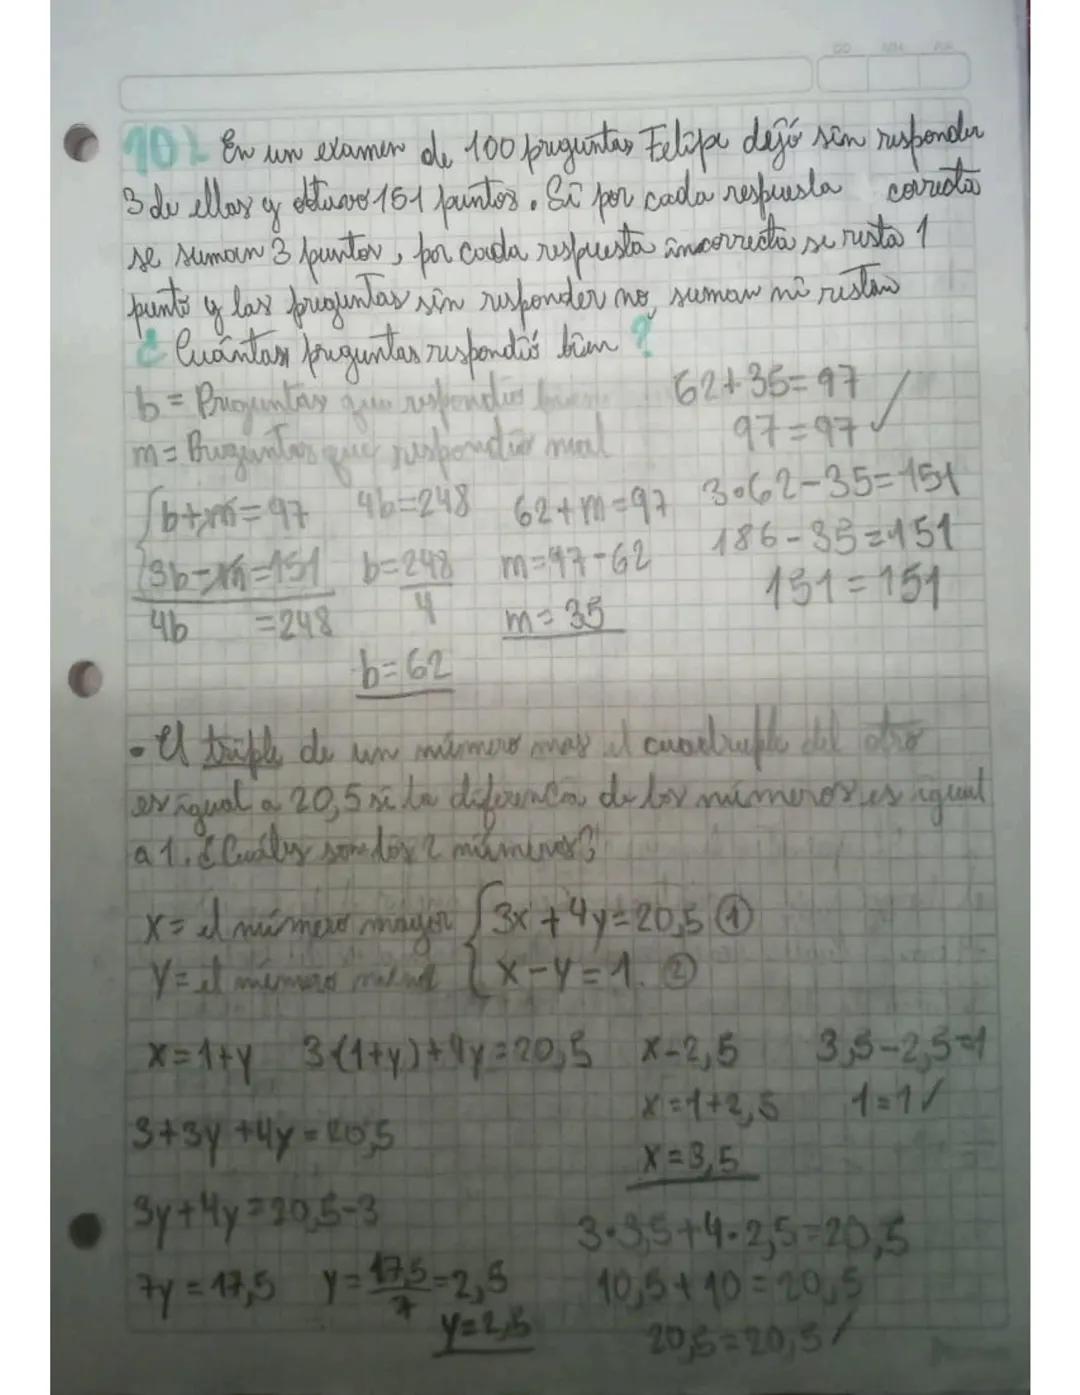 DD MM AA
10) En un examen de 100 preguntas Felipe dejó sin responder
3 de ellas y obtuvo 151 puntos. Si por cada respuesta correcta
se suman 3 puntos, por cada respuesta incorrecta se resta 1
punto y las preguntas sin responder no, suman ni restan
¿Cuántas preguntas respondió bien?
b = Preguntas que respondio bien
m = Preguntas que respondio mal
62+35=97
97=97 ✓
b+m=97
3b-m=151
4b =248
4b=248
b=248/4
b=62
62+m=97
m=97-62
m=35
3•62-35=151
186-35=151
151=151
• El triple de un número mas el cuadruple del otro
es igual a 20,5 si la diferencia de los números es igual
a 1. ¿Cuáles son los 2 números?
x = el número mayor
y = el número menor
3x+4y=20,5 ①
x-y=1. ②
x=1+y
3(1+y)+4y=20,5
3+3y+4y=20,5
3y+4y=20,5-3
7y=17,5
y=17,5/7=2,5
y=2,5
x-2,5
x=1+2,5
x=3,5
3,5-2,5=1
1=1✓
3•3,5+4•2,5=20,5
10,5+10=20,5
20,5=20,5✓